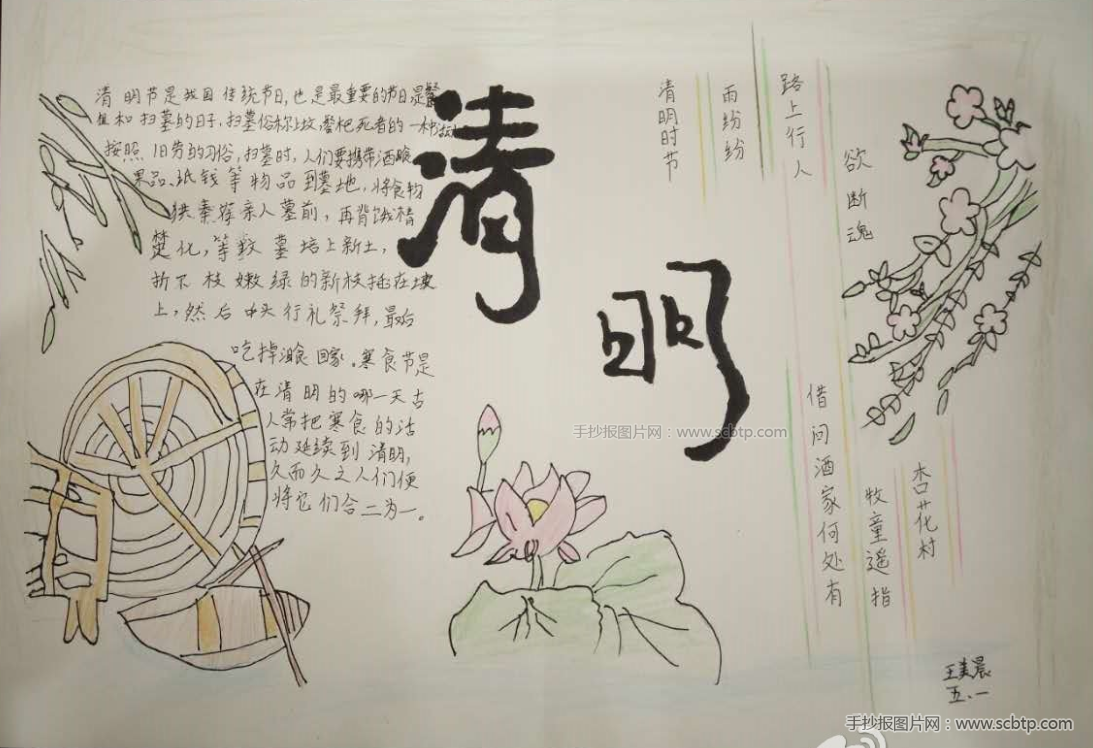 清明节是我国传统节日,也是最重要的节日,是
和扫墓的日子,扫墓俗称上坟,祭祀死者的一种
按照旧劳的习俗,扫墓时,人们要携带酒食
果品、纸钱等物品到墓地,将食物
供亲人墓前,再
楚化,等墓培上新土,
折下枝嫩绿的新枝插在坟
上,然后叩头行礼祭拜,最后
吃掉酒食回家.寒食节是
在清明的哪一天古
人常把寒食的活
动延续到清明,
久而久之人们便
将它们合二为一。
清明
清明时节
雨纷纷
路上行人
欲断魂
借问酒家何处有
牧童遥指
杏花村
王美晨
五.一
手抄报图片网:www.scbtp.com
手抄报图片网:www.scbtp.com